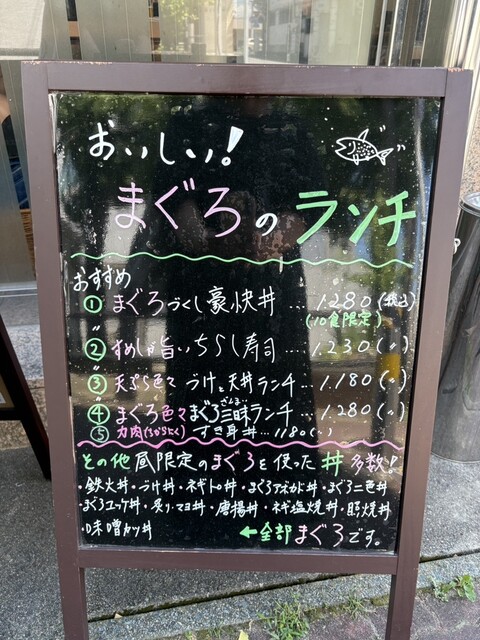 おいしい!
まぐろのランチ
おすすめ
① まぐろづくし豪快丼 … 1.280(税込)
(10食限定)
② すめしが旨いちらし寿司 … 1.230(〃)
③ 天ぷら色々 づけと天丼ランチ 1.180(〃)
④ まぐろ色々まぐろ三昧ランチ … 1.280(〃)
ざんまい
⑤ 力肉(ちからにく) すき身丼 … 1180(〃)
その他 昼限定のまぐろを使った丼 多数!
・鉄火丼・づけ丼・ネギトロ丼・まぐろアボカド丼・まぐろ二色丼
・まぐろユッケ丼・炙りマヨ丼・唐揚丼・ネギ塩焼丼・照焼丼
・味噌カツ丼
←全部まぐろです。